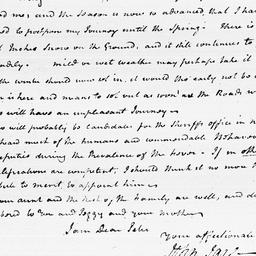 ed me; and the Season is now so advanced, that I have
ed to postpone my Journey until the Spring. There is
Inches Snow on the Ground, and it still continues to
mild or wet weather may perhaps take it
the winter should now set in, it would
is here and means to set out as soon as the Roads w
will have an unpleasant Journey—
will probably be Candidate for the Sheriffs office in
heard much of the humane and commendable Behavour
during the Prevalence of the fever. If in other
alifications are competent, I should think it no more th
bute to merit, to appoint him—
your aunt and the rest of the Family are well, and de
to you and Peggy and your mother
I am Dear Peter
your affectionate
John Jay